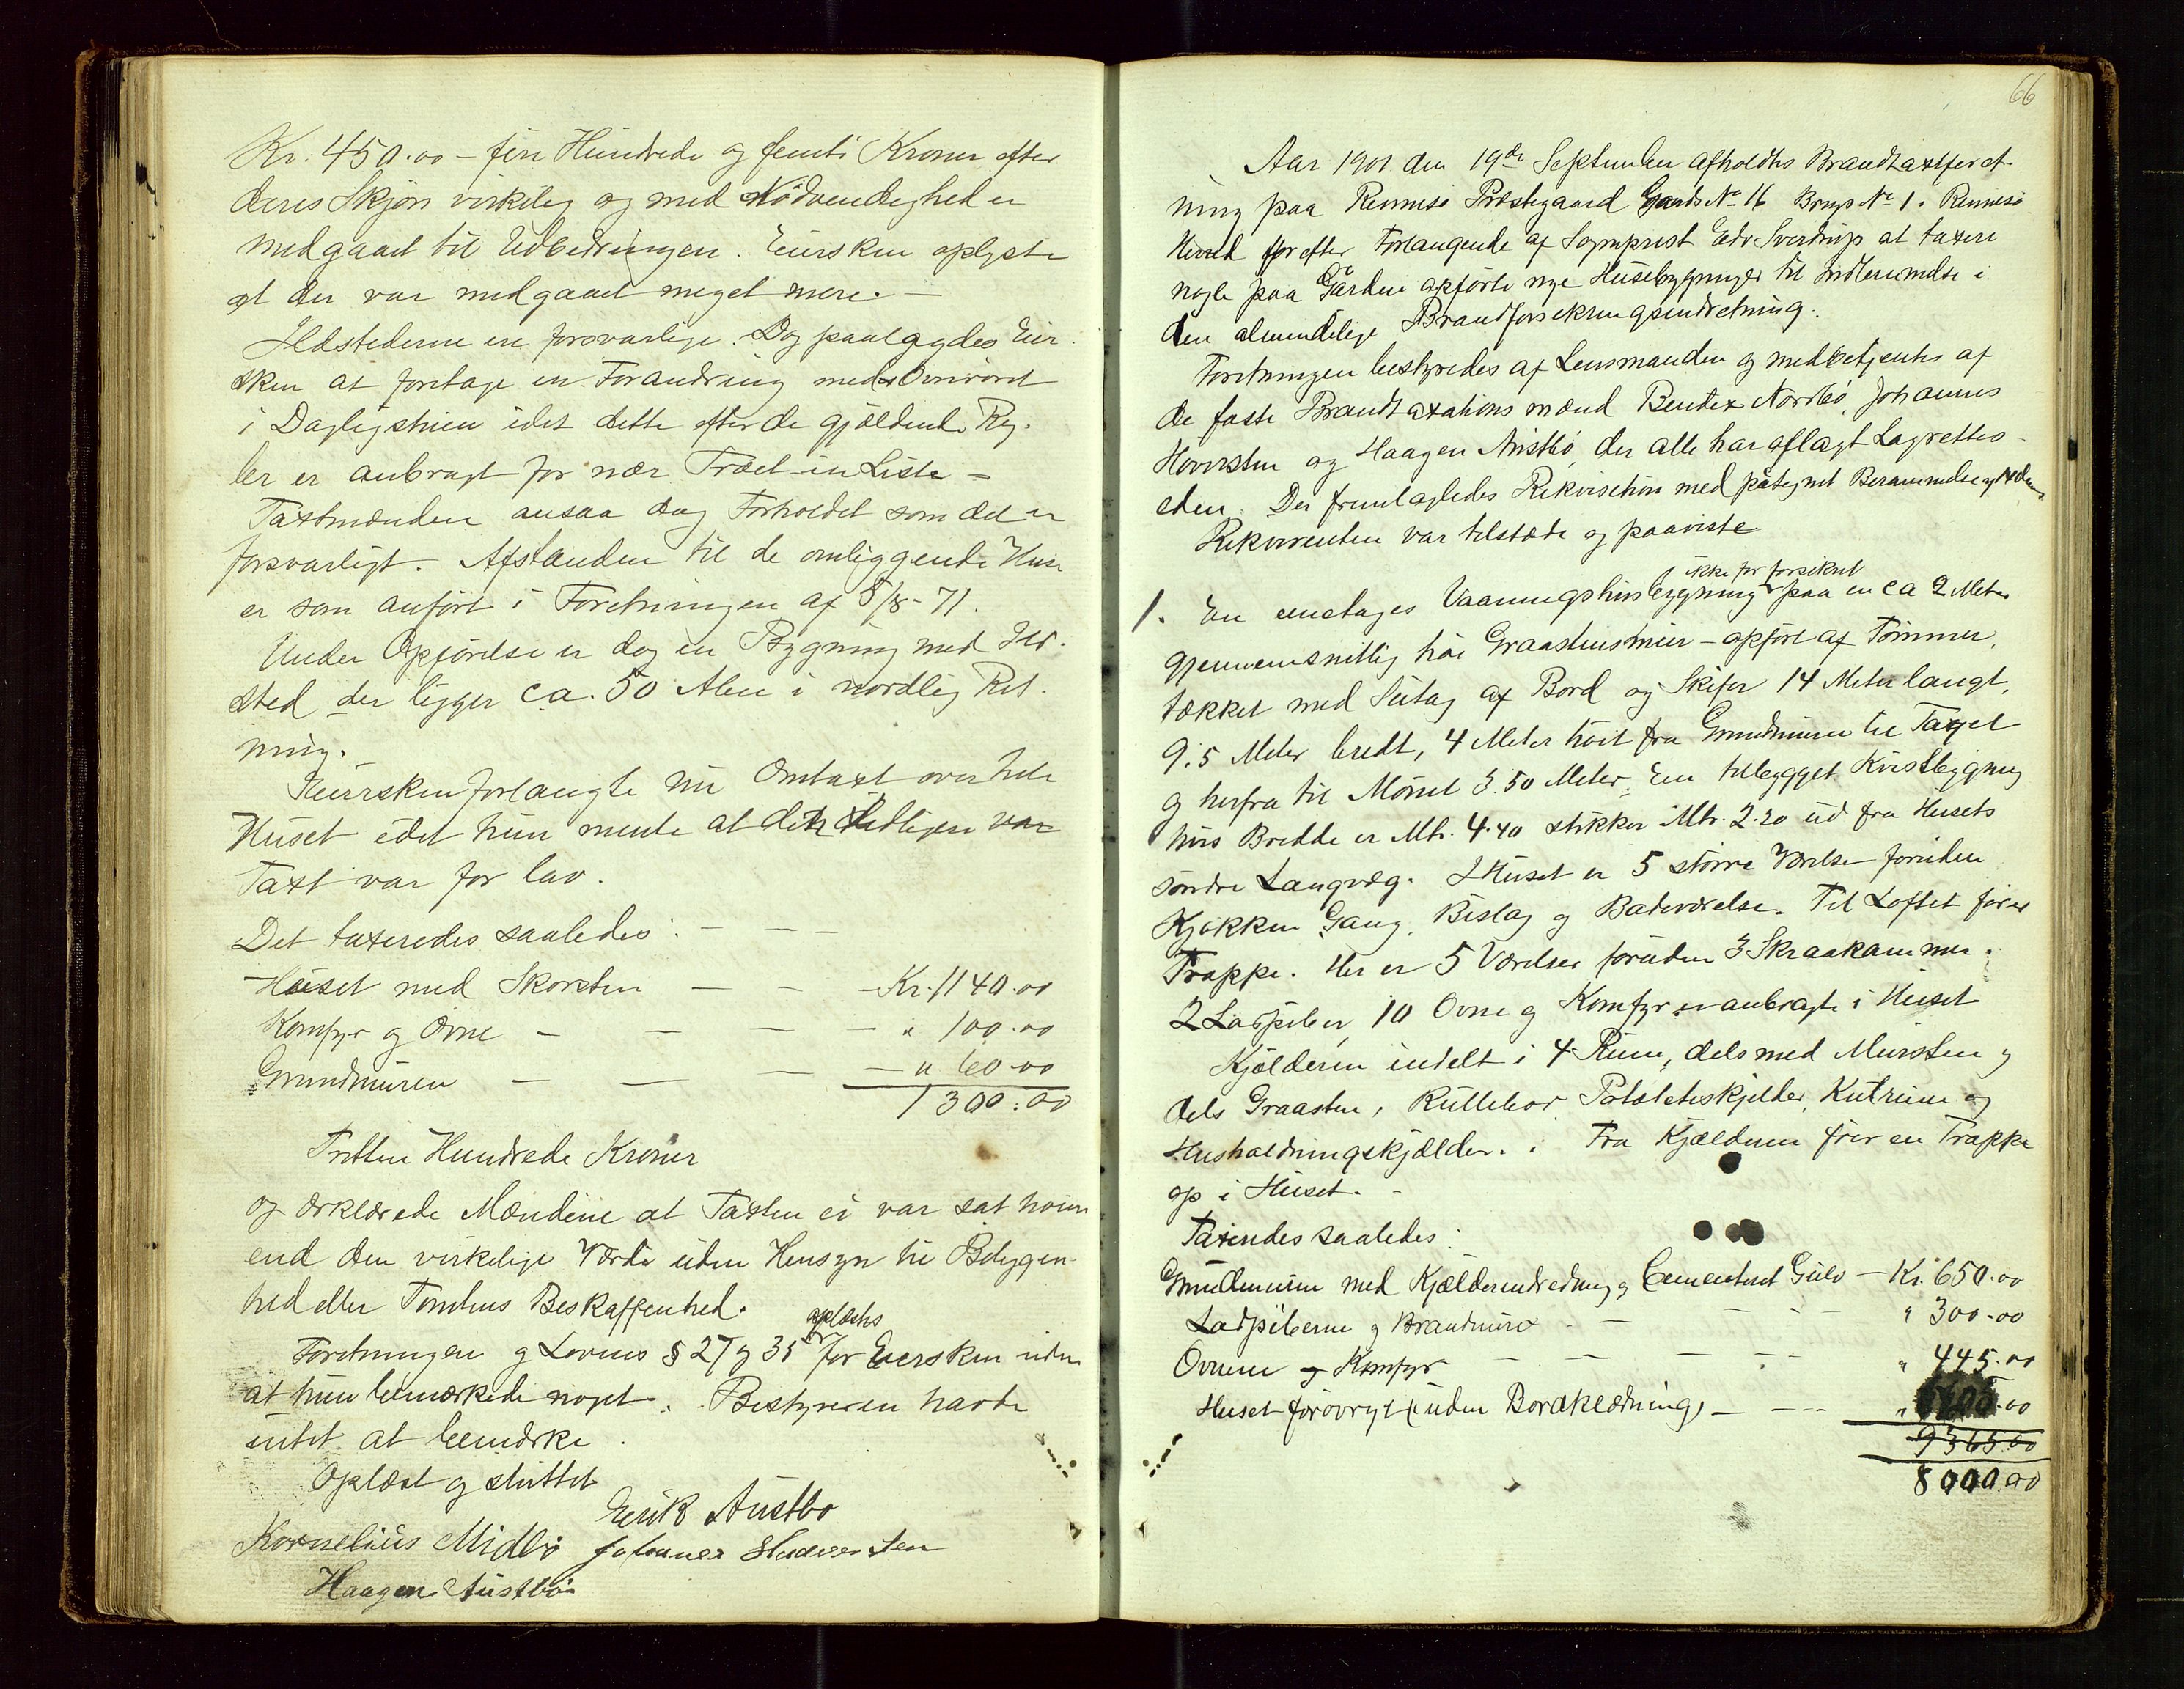 Kr. 450.00 – fire Hundrede og femti Kroner efter
deres Skjøn virkelig og med Nödvendighed er
medgaaet til Udbedringen. Eiersken oplyste
at der var medgaaet meget mere. –
Ildstederne ere forsvarlige. Dog paalagdes Eier-
sken at foretage en Forandring med Ovnsröret
i Dagligstuen idet dette efter de gjældende Reg-
ler er anbragt for nær Træet in Liste –
Taxtmændene ansaa dog Forholdet som det er
forsvarligt. Afstanden til de omliggende Huse
er som anfört i Forretningen af 5/8-71.
Under Opförelse er dog en Bygning med Ild-
sted der ligger ca. 50 Alen i nordlig Ret-
ning.
Eiersken forlangte nu Omtaxt over hele
Huset idet hun mente at den tidligere var
Taxt var for lav.
Det taxeredes saaledes: – – –
Huset med Skorsten – – – Kr. 1140.00
Komfyr og Ovne – – – – " 100.00
Grundmuren – – – – " 60.00
1300.00
Tretten Hundrede Kroner
og erklærede Mændene at Taxten ei var sat høiere
end den virkelige Værdi uden Hensyn til Beliggen-
hed eller Tomtens Beskaffenhed.
oplæstes
Forretningen og Lovens § 27 og 35 for Eiersken uden
at hun bemærkede noget. Bestyreren havde
intet at bemærke.
Oplæst og sluttet
Erik Austbø
Kornelius Midbö Johannes Hoversten
Haagen Austbö
66
Aar 1901 den 19de September afholdtes Brandtaxtforret-
ning paa Rennesö Præstegaard Gaards No 16 Brugs No 1 i Rennesö
Herred for efter Forlangende af Sognprest Edv Sverdrup at taxere
nogle paa Gården opförte nye Husebygninger til Indlemmelse i
den almindelige Brandforsikringsindretning.
Forretningen bestyredes af Lensmanden og medbetjentes af
de faste Brandtaxationsmænd Bendix Nordbö, Johannes
Hoversten og Haagen Austbö, der alle har aflagt Lagrettes-
eden. Der fremlagdes Rekvisition med påtegnet Berammelse og
Rekvirenten var tilstæde og paaviste
ikke för forsikret
1. En enetages Vaaningshusbygning paa en ca 2 Meter
gjennemsnitlig höi Graastensmur – opfört af Tömmer,
tækket med Sutag af Bord og Skifer 14 Meter langt,
9.5 Meter bredt, 4 Meter höit fra Grundmuren til Taget
og herfra til Mönet 3.50 Meter. En tilbygget Kvistbygning
hvis Bredde er Mtr. 4.40 stikker Mtr. 2.20 ud fra Husets
söndre Langvæg. I Huset er 5 större Værelser foruden
Kjøkken Gang, Bislag og Badeværelse. Til Loftet förer
Trappe. Her er 5 Værelser foruden 3 Skraakammer.
2 Ladpiber, 10 Ovne og Komfyr er anbragte i Huset
Kjælderen indelt i 4 Rum, dels med Mursten og
dels Graasten, Rullebod Potateskjelder, Kulrum og
Husholdningskjælder. Fra Kjælderen förer en Trappe
op i Huset. –
Taxeredes saaledes:
Grundmuren med Kjælderindredning og Cementeret Gulv – Kr. 650.00
Ladpiberne og Brandmure – – – – " 300.00
Ovnene og Komfyr – – – – – " 445.00
Huset forövrigt (uden Bordklædning) – – – " 6605.00
9365.00
8000.00